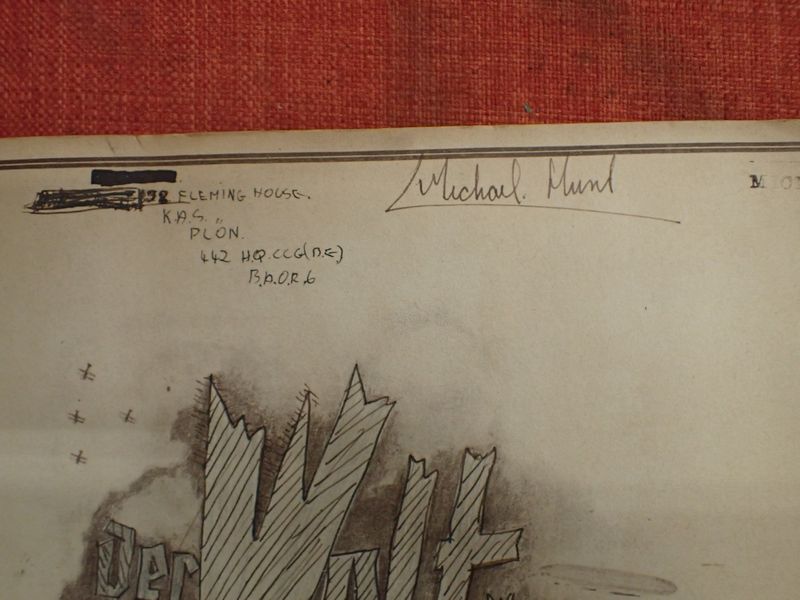 FLEMING HOUSE.
K.A.S. „
PLON.
442 H.Q. CCG(B.E)
B.A.O.R.6
Michael.
Der Welt